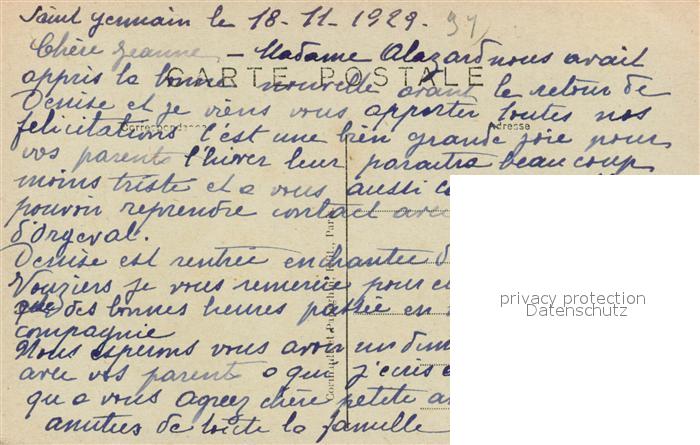 Saint germain le 18-11-1929. 
Chère Jeanne, - Madame Alazard nous avait
appris la bonne nouvelle avant le retour de
CARTE POSTALE
Denise et je viens vous apporter toutes nos
félicitations c'est une bien grande joie pour
Correspondance
Adresse
vos parents l'hiver leur paraitra beaucoup
moins triste et a vous aussi
pouvoir reprendre contact avec
d'Orgeval.
Denise est rentrée enchantée d
Vouziers je vous remercie pour
des bonnes heures passée en
compagnie
Nous esperons vous avoir un dim
avec vos parent
qu a vous agreez chère petite
amitiés de toute la famille
privacy protection
Datenschutz